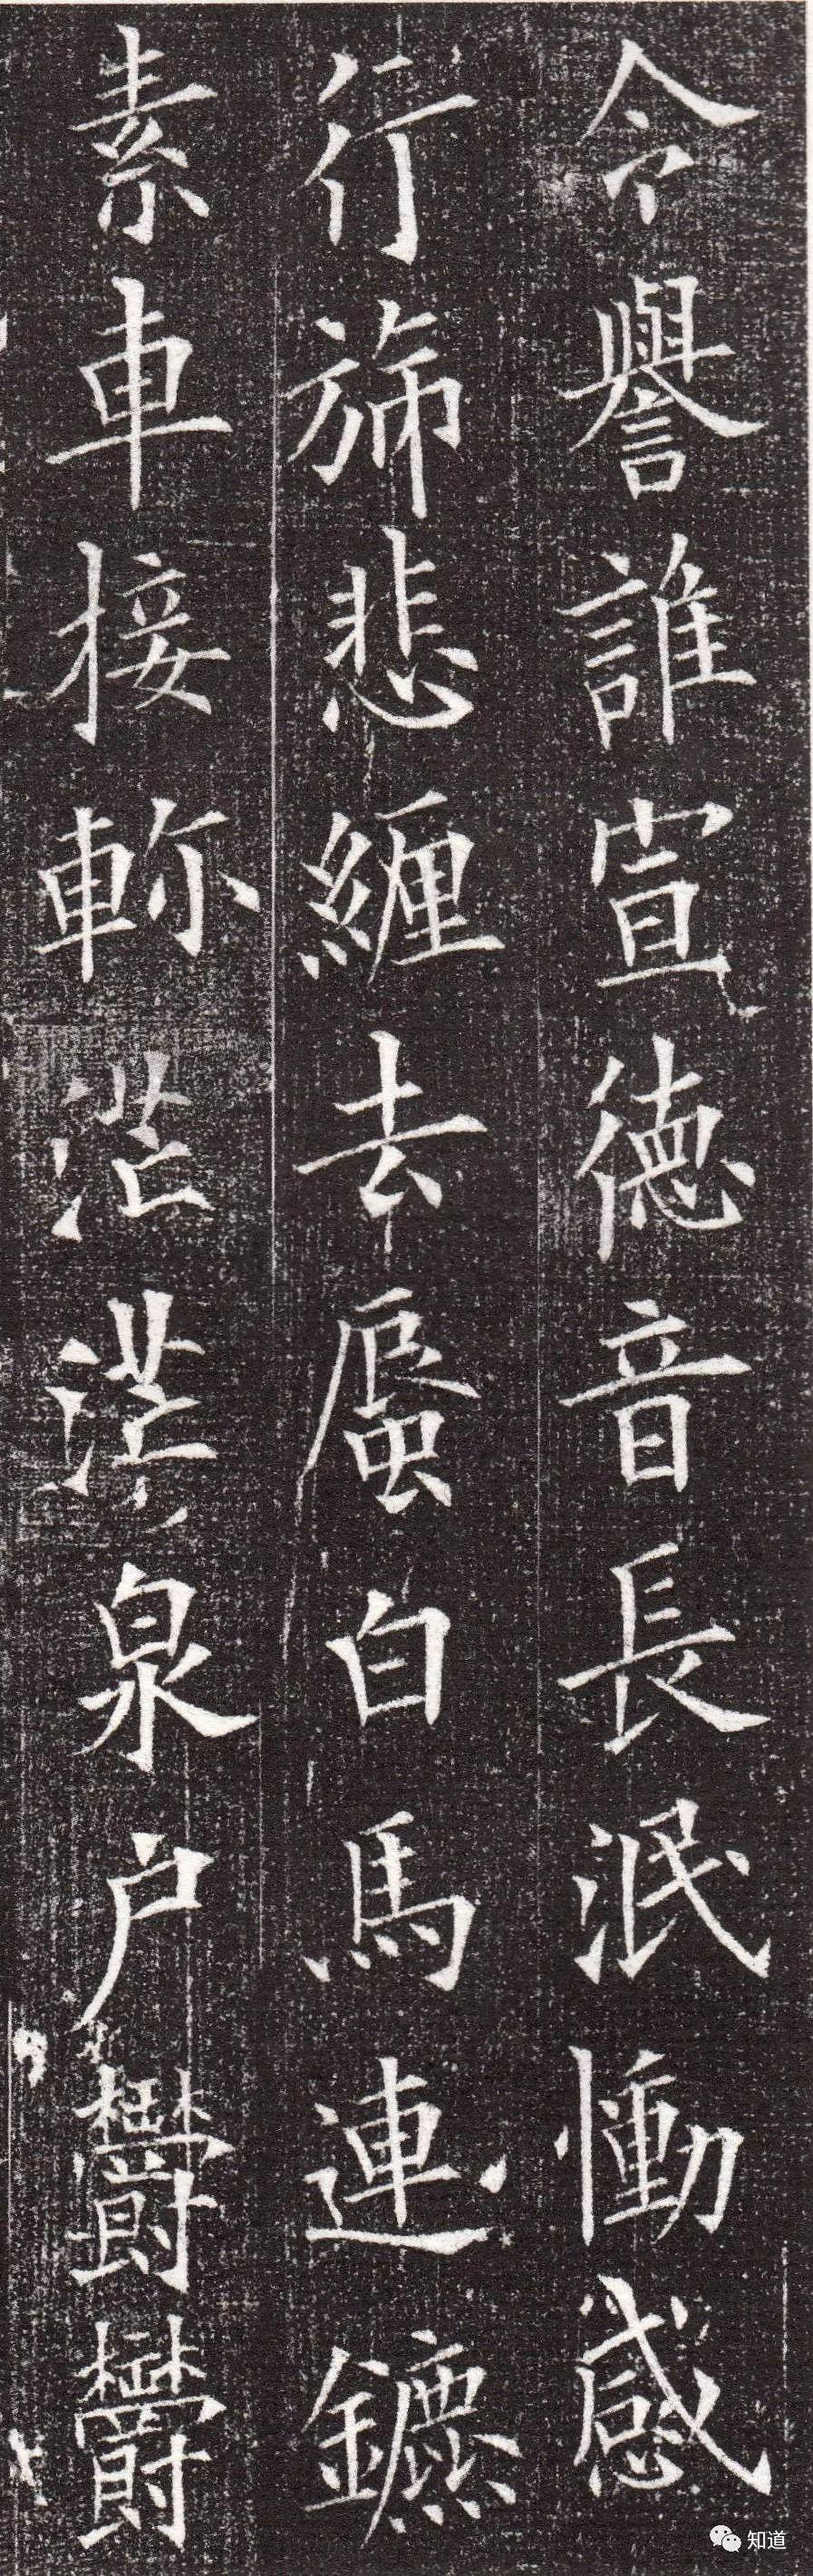 令譽誰宣德音長泯慟感
行斾悲纏去蜃白馬連鑣
素車接軫茫茫泉户欝欝
知道